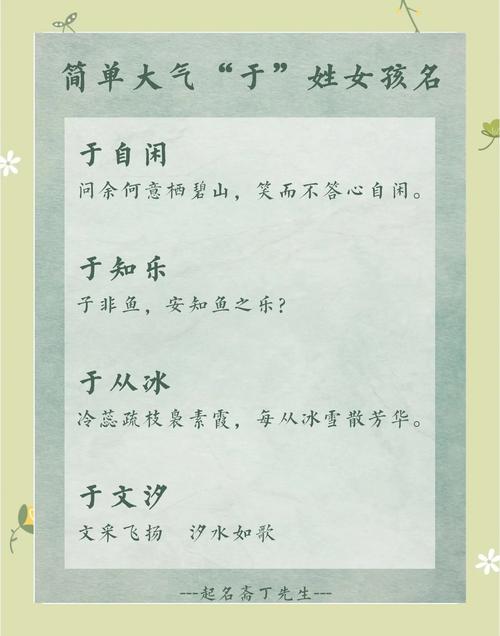 简单大气“于”姓女孩名
于自闲
问余何意栖碧山，笑而不答心自闲。
于知乐
子非鱼，安知鱼之乐？
于从冰
冷蕊疏枝袅素霞，每从冰雪散芳华。
于文汐
文采飞扬　汐水如歌
---起名斋丁先生---